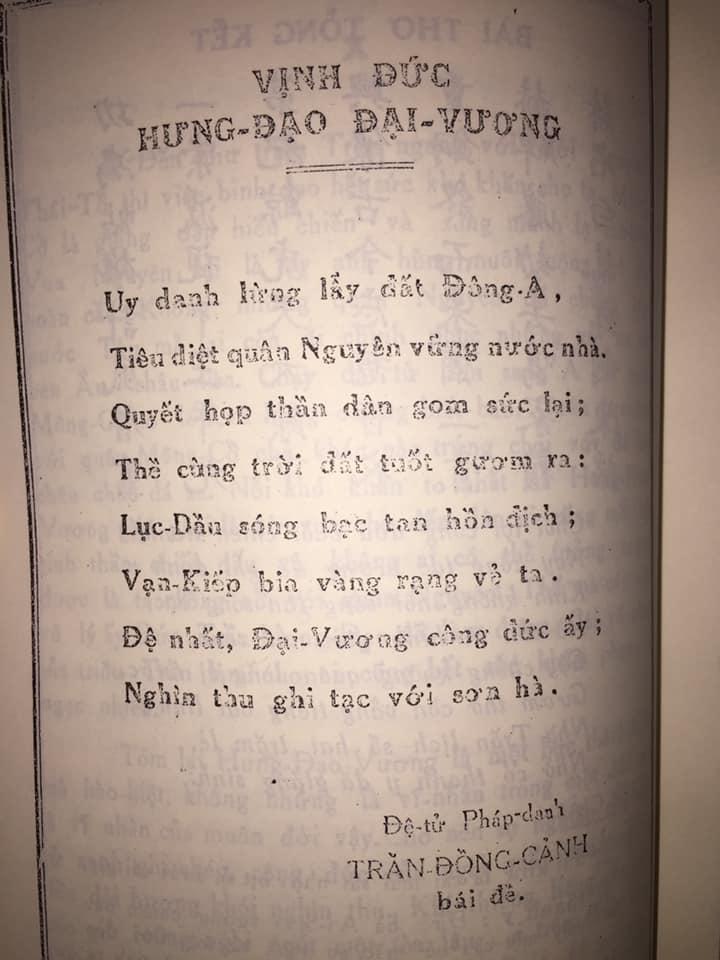 VỊNH ĐỨC
HƯNG-ĐẠO ĐẠI-VƯƠNG
Uy danh lừng lẫy đất Đông-A,
Tiêu diệt quân Nguyên vững nước nhà.
Quyết họp thần dân gom sức lại;
Thề cùng trời đất tuốt gươm ra:
Lục-Dầu sóng bạc tan hồn địch;
Vạn-Kiếp bia vàng rạng vẻ ta.
Đệ nhất, Đại-Vương công đức ấy;
Nghìn thu ghi tạc với sơn hà.
Đệ-tử Pháp-danh
TRẦN-ĐỒNG-CẢNH
bái đề.